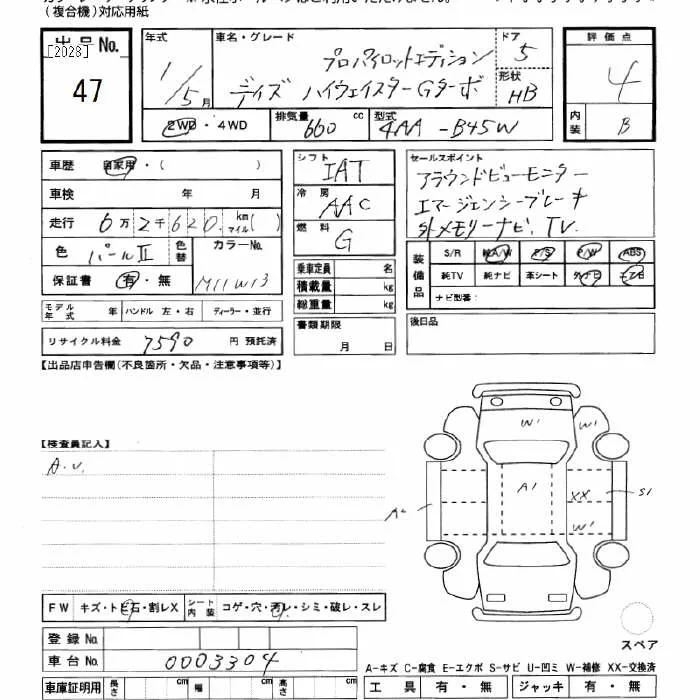 (複合機)対応用紙
出品No.
[2028]
47
年式
1/5月
車名・グレード
プロパイロットエディション
デイズ ハイウェイスターGターボ
ドア
5
形状
HB
評価点
4
内装
B
2WD・4WD
排気量 660 cc
型式 4AA-B45W
車歴 自家用・( )
車検 年 月
走行 6万2千620 km マイル( )
色 パールII
色替
カラーNo.
M11W13
保証書 有・無
シフト
IAT
冷房
AAC
燃料
G
乗車定員 名
積載量 kg
総重量 kg
書類期限
月 日
セールスポイント
アラウンドビューモニター
エマージェンシーブレーキ
外メモリーナビ、TV.
装備品
S/R A/W P/S P/W ABS
純TV 純ナビ 革シート 外ナビ エアB
ナビ型番:
後日品
モデル年式 年 ハンドル 左・右 ディーラー・並行
リサイクル料金 7590 円 預託済
【出品店申告欄(不良箇所・欠品・注意事項等)】
【検査員記入】
A.U.
W1 W1
A1
XX
S1
W1
FW キズ・トビ石・割レX シート内装 コゲ・穴・汚レ・シミ・破レ・スレ
登録No.
車台No. 0003304
車庫証明用 長さ cm 幅 cm 高さ cm
スペア
A-キズ C-腐食 E-エクボ S-サビ U-凹ミ W-補修 XX-交換済
工具 有・無 ジャッキ 有・無